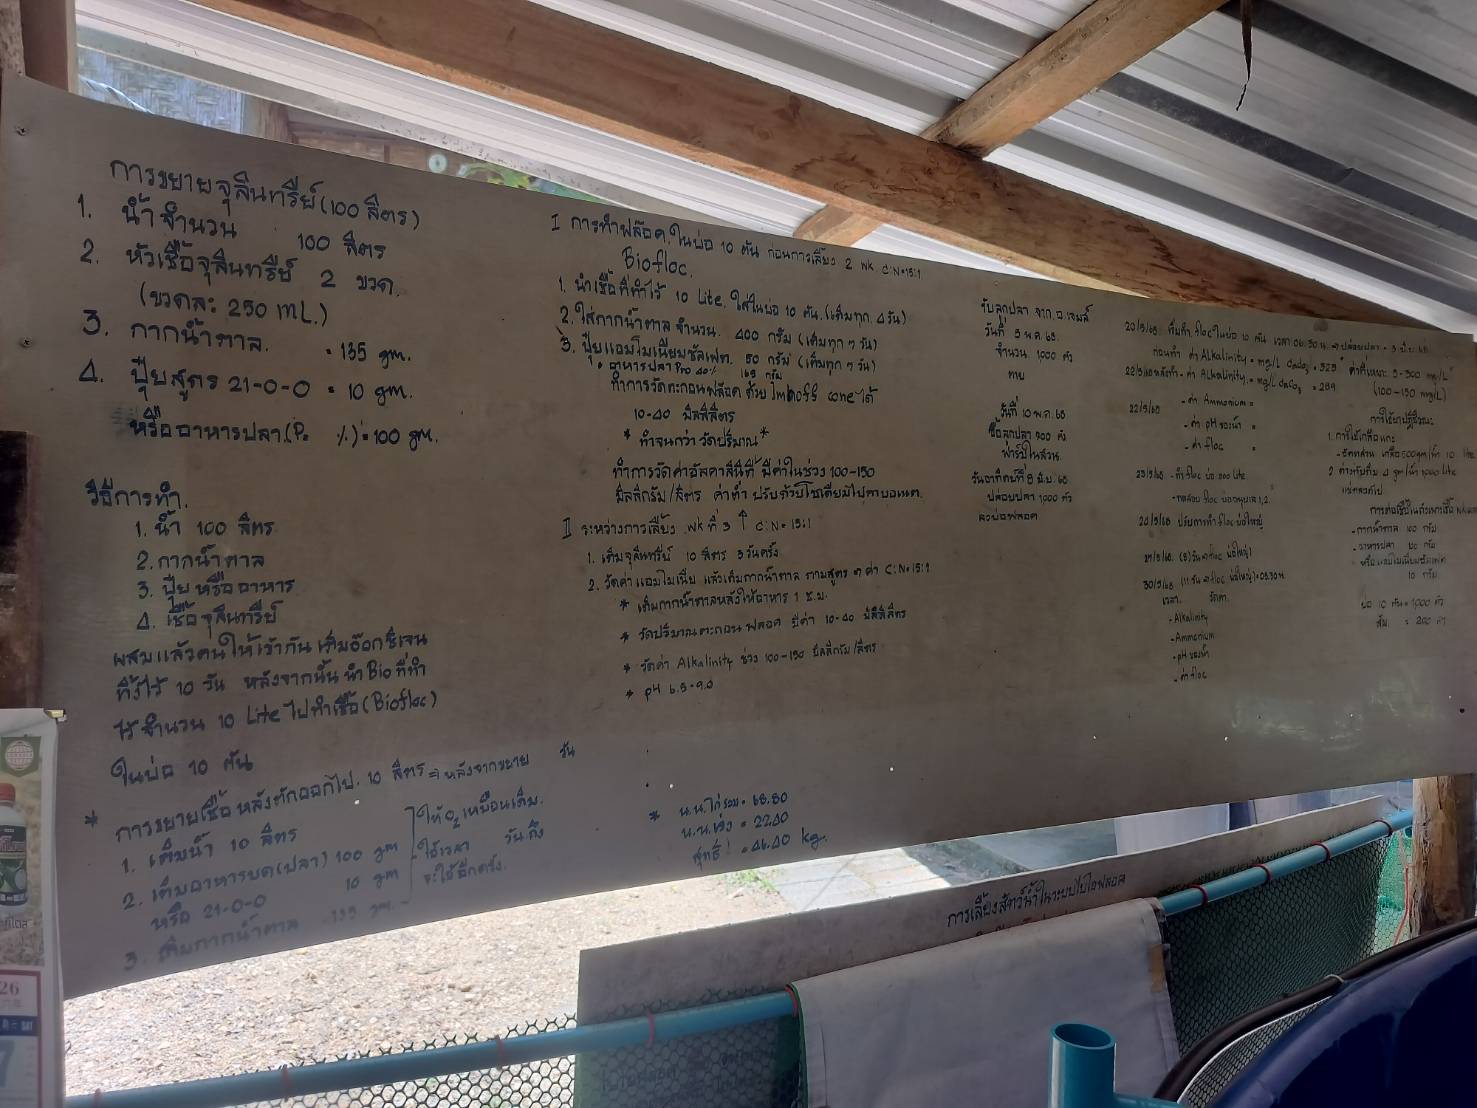 การขยายจุลินทรีย์ (100 ลิตร)
1. น้ำจำนวน 100 ลิตร
2. หัวเชื้อจุลินทรีย์ 2 ขวด.
(ขวดละ 250 mL.)
3. กากน้ำตาล. = 135 gm.
4. ปุ๋ยสูตร 21-0-0 = 10 gm.
หรืออาหารปลา (P= %) = 100 gm.
วิธีการทำ.
1. น้ำ 100 ลิตร
2. กากน้ำตาล
3. ปุ๋ย หรืออาหาร
4. เชื้อจุลินทรีย์
ผสมแล้วคนให้เข้ากัน เติมอ๊อกซิเจน
ทิ้งไว้ 10 วัน หลังจากนั้น นำ Bio ที่ทำ
ไว้ จำนวน 10 Lite ไปทำเชื้อ (Biofloc)
ในบ่อ 10 ตัน
* การขยายเชื้อ หลังตักออกไป 10 ลิตร ⇒ หลังจากขยาย วัน
1. เติมน้ำ 10 ลิตร
2. เติมอาหารบด (ปลา) 100 gm
หรือ 21-0-0 10 gm
3. เติมกากน้ำตาล 135 gm.
- ให้ O₂ เหมือนเดิม.
- ใช้เวลา วัน ถึง
จะใช้อีกครั้ง.
I การทำฟล๊อค ในบ่อ 10 ตัน ก่อนการเลี้ยง 2 wk. C:N=15:1
Biofloc.
1. นำเชื้อที่ทำไว้ 10 Lite. ใส่ในบ่อ 10 ตัน. (เติมทุก 4 วัน)
2. ใส่กากน้ำตาล จำนวน 400 กรัม (เติมทุก 7 วัน)
3. ปุ๋ยแอมโมเนียมซัลเฟต. 50 กรัม (เติมทุก 7 วัน)
* อาหารปลา Pro 40% 165 กรัม
ทำการวัดตะกอนฟล๊อค ด้วย Imhoff cone ได้
10-40 มิลลิลิตร
* ทำจนกว่า วัดปริมาณ *
ทำการวัดค่าอัลคาลินิที่ มีค่าในช่วง 100-150
มิลลิกรัม/ลิตร ค่าต่ำ ปรับด้วยโซเดียมไบคาบอเนต.
II ระหว่างการเลี้ยง wk ที่ 3 ↑ C:N=15:1
1. เติมจุลินทรีย์ 10 ลิตร 3 วันครั้ง
2. วัดค่าแอมโมเนีย แล้วเติมกากน้ำตาล ตามสูตร ค่า C:N=15:1
* เติมกากน้ำตาลหลังให้อาหาร 1 ช.ม.
* วัดปริมาณตะกอน ฟลอค มีค่า 10-40 มิลลิลิตร
* วัดค่า Alkalinity ช่วง 100-150 มิลลิกรัม/ลิตร
* pH 6.5-9.0
* น.น. ไก่รวม = 68.80
น.น. เข่ง = 22.40
สุทธิ = 46.40 kg.
รับลูกปลา จาก. อ. เจมส์
วันที่ 5 พ.ค. 65.
จำนวน 1,000 ตัว
ตาย
วันที่ 10 พ.ค. 65
ซื้อลูกปลา 300 ตัว
ฟาร์มในสวน.
วันอาทิตย์ที่ 5 มิ.ย. 65
ปล่อยปลา 1,000 ตัว
ลงบ่อฟลอค
20/5/65. เริ่มทำ floc ในบ่อ 10 ตัน เวลา 06.30 น. ⇒ ปล่อยปลา = 5 มิ.ย. 65
ก่อนทำ ค่า Alkalinity = mg/L CaCO₃ = 323
22/5/65 หลังทำ - ค่า Alkalinity = mg/L CaCO₃ = 289
(100-150 mg/L)
- ค่า Ammonium =
22/5/65 - ค่า pH ของน้ำ =
- ค่า floc =
23/5/65 - ทำ floc บ่อ 200 Lite
- ทดสอบ floc บ่ออนุบาล 1,2.
24/5/65 ปรับการทำ floc บ่อใหญ่
30/5/65 (11 วัน ⇒ floc บ่อใหญ่) = 05.30 น.
เวลา. วัดค่า.
- Alkalinity
- Ammonium
- pH ของน้ำ
- ค่า floc
การใช้ยาปฏิชีวนะ
1. การใช้เกลือแกง
- อัตราส่วน เกลือ 500 gm/น้ำ 10 Lite
2. ด่างทับทิม 4 gm/น้ำ 1,000 Lite
- กากน้ำตาล 100 กรัม
- อาหารปลา 100 กรัม
- หรือ แอมโมเนียมซัลเฟต
10 กรัม
บ่อ 10 ตัน = 1,000 ตัว
การเลี้ยงสัตว์น้ำในระบบไบโอฟลอค
26
SAT
7